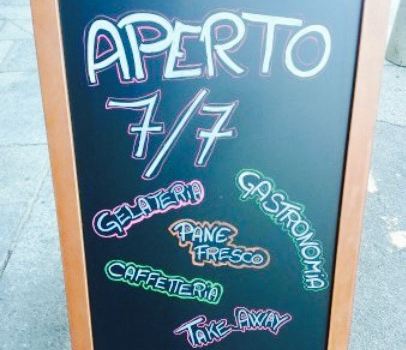 APERTO
7/7
GELATERIA
GASTRONOMIA
PANE
FRESCO
CAFFETTERIA
TAKE AWAY